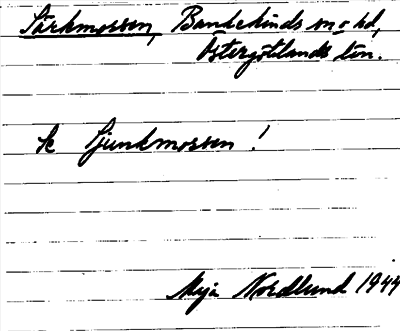 Särkmossen, Bankekinds sn o hd,
Östergötlands län.
Se Ljunkmossen!
Maja Nordlund 1944